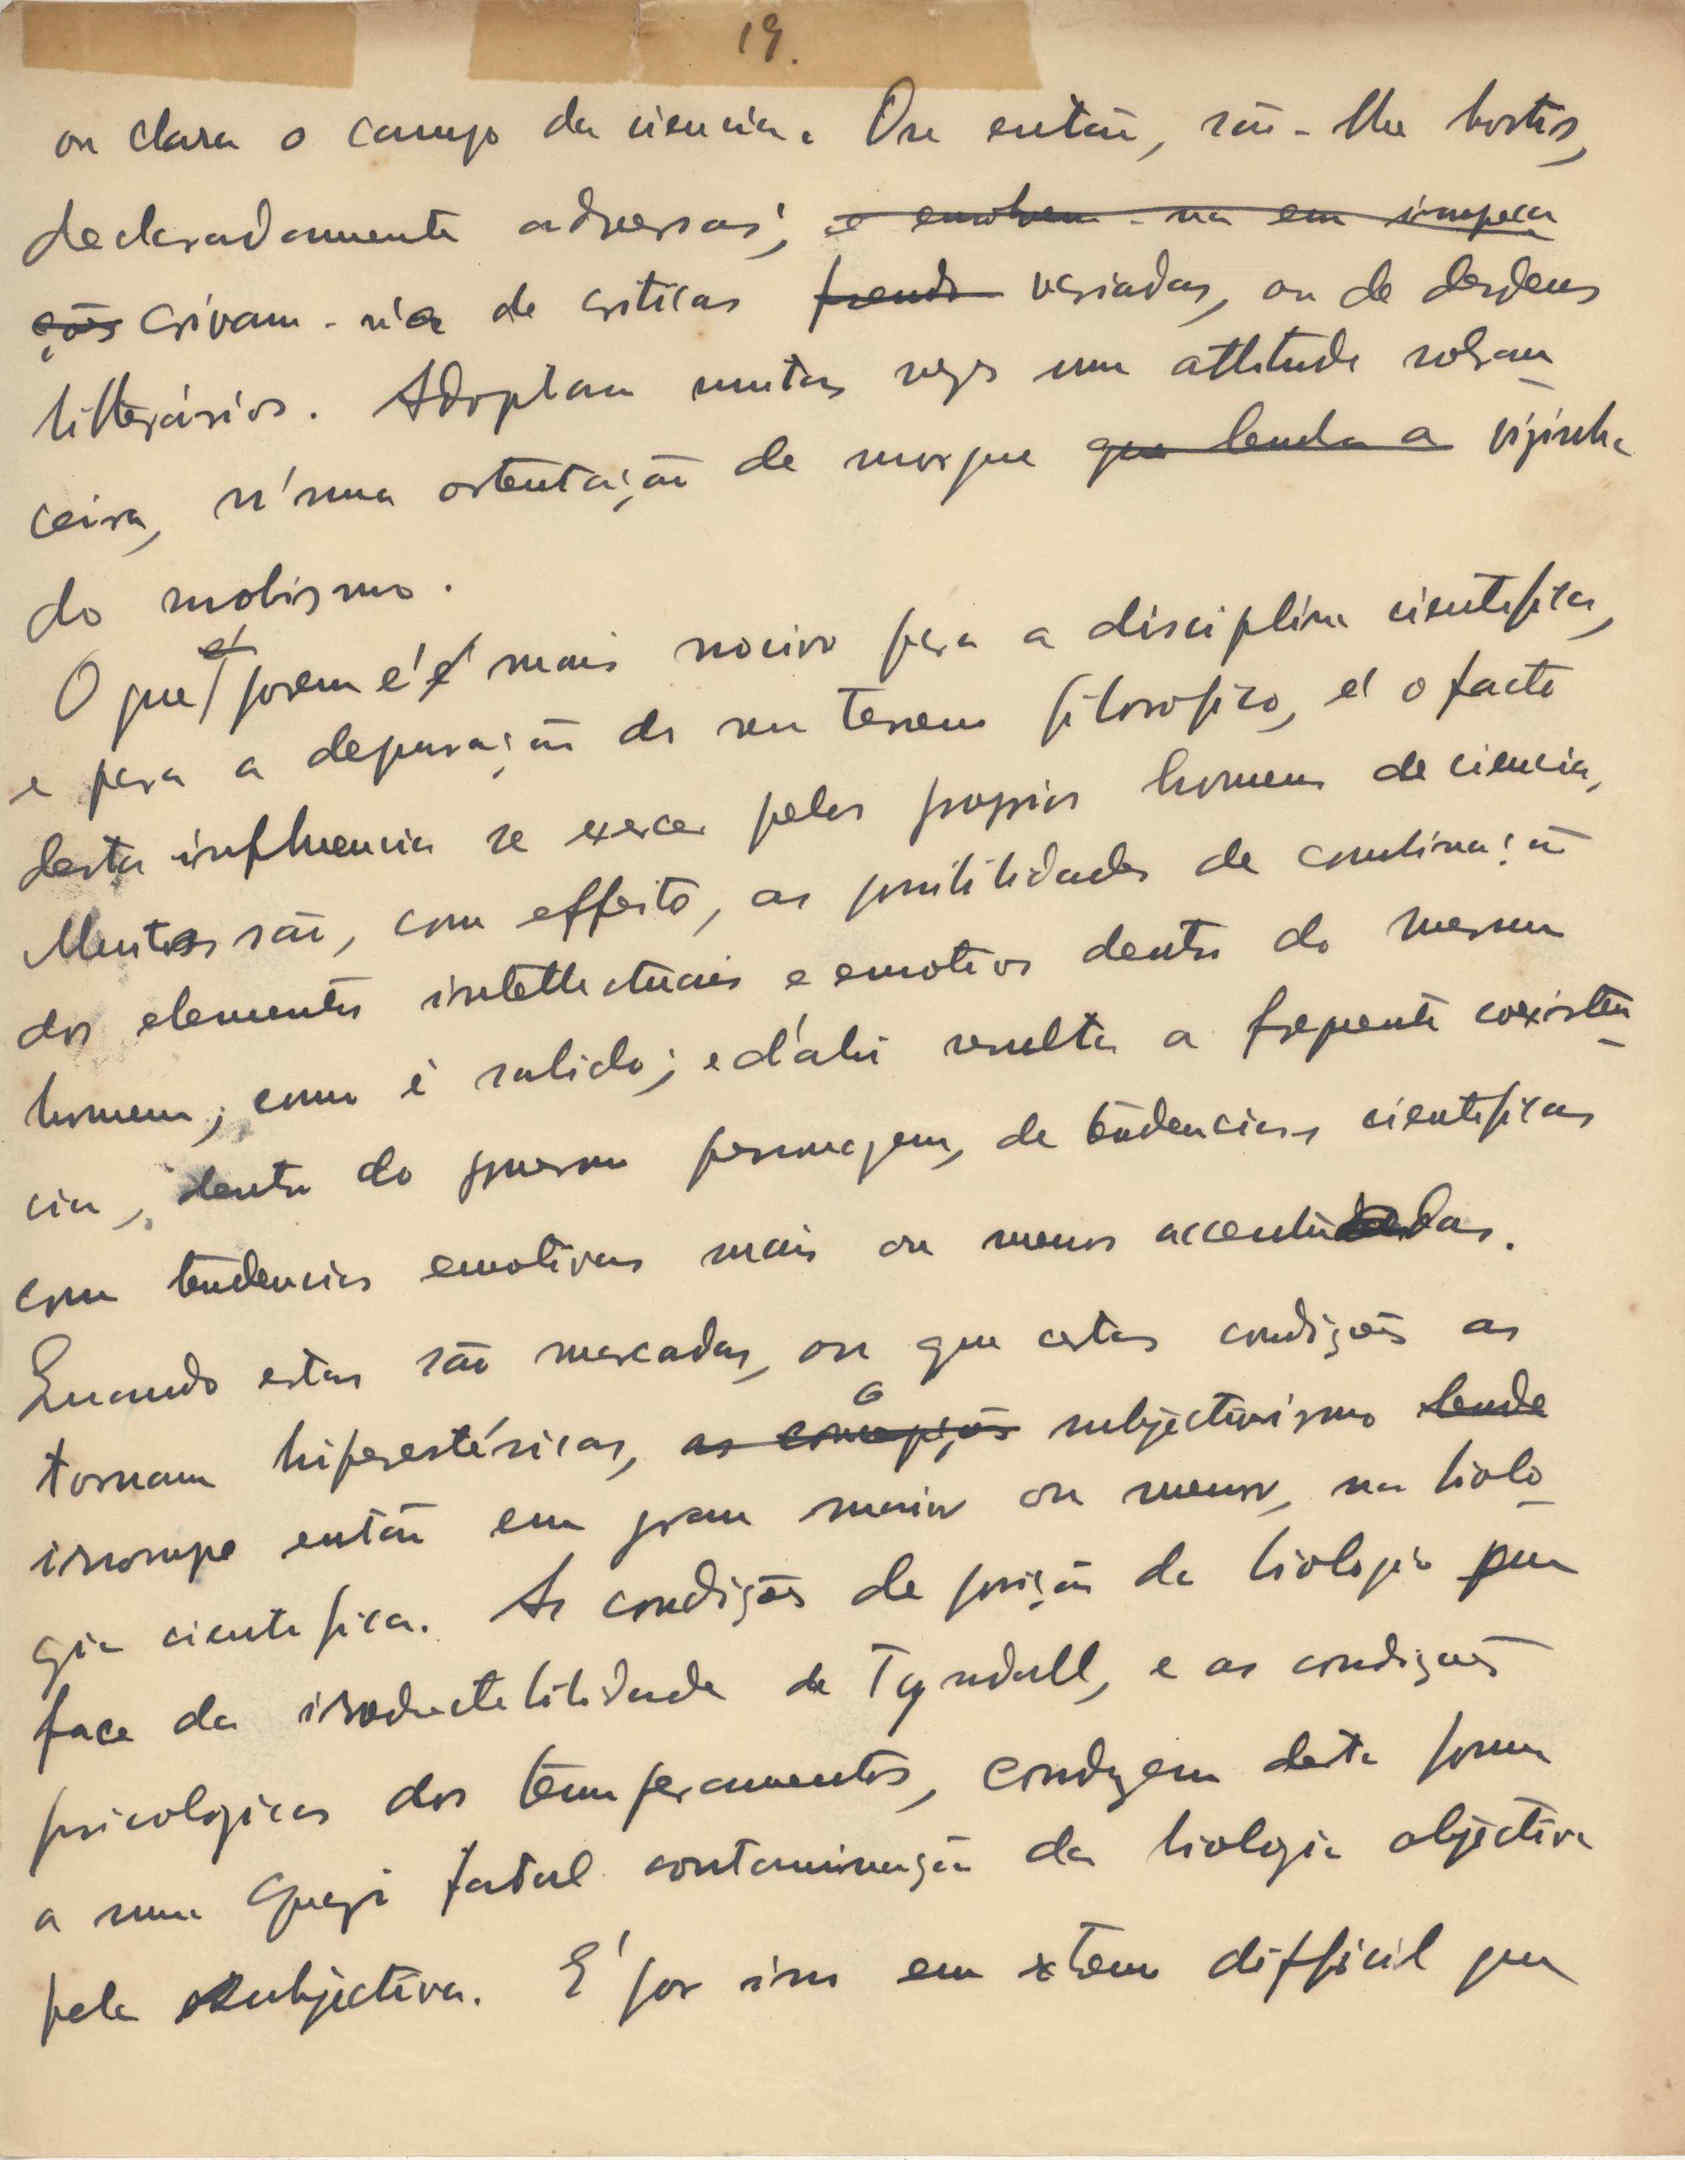 19.
ou clara o campo da sciencia. Ou então, são-lhe hostis,
declaradamente adversas; e envolvem-na em impeca
ções crivam-n'a de criticas variadas, ou de desdens
litterários. Adoptam muitas vezes uma attitude sobran
ceira, n'uma ostentação de morgue que lenda a vizinha
do snobismo.
O que porem é é mais nocivo para a disciplina scientifica,
e para a depuração do seu terreno filosofico, é o facto
desta influencia se exercer pelos proprios homens de sciencia,
Muitas são, com effeito, as possibilidades de combinação
dos elementos intellectuais e emotivos dentro do mesmo
homem, como é sabido; e d'ahi resulta a frequente coexisten
cia, dentro do mesmo personagem, de tendencias scientificas
com tendencias emotivas mais ou menos accentuadas.
Quando estas são marcadas, ou que certas condições as
tornam hiperestésicas, as concepções o subjectivismo tende
irrompe então em grau maior ou menor, na biolo
gia scientifica. As condições de posição da biologia em
face da irreductibilidade de Tyndall, e as condições
psicologicas dos temperamentos, conduzem desta forma
a uma quasi fatal contaminação da biologia objectiva
pela subjectiva. É por isso em extremo difficil que